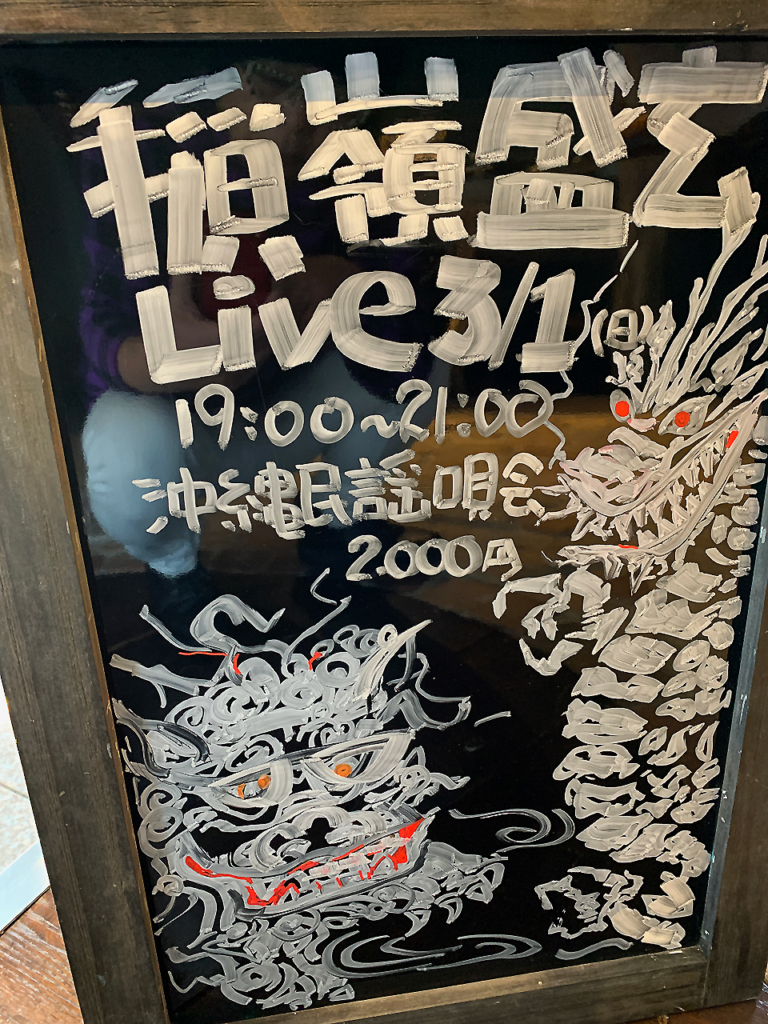 稲嶺盛玄
Live 3/1(日)
19:00~21:00
沖縄民謡唄会
2.000円